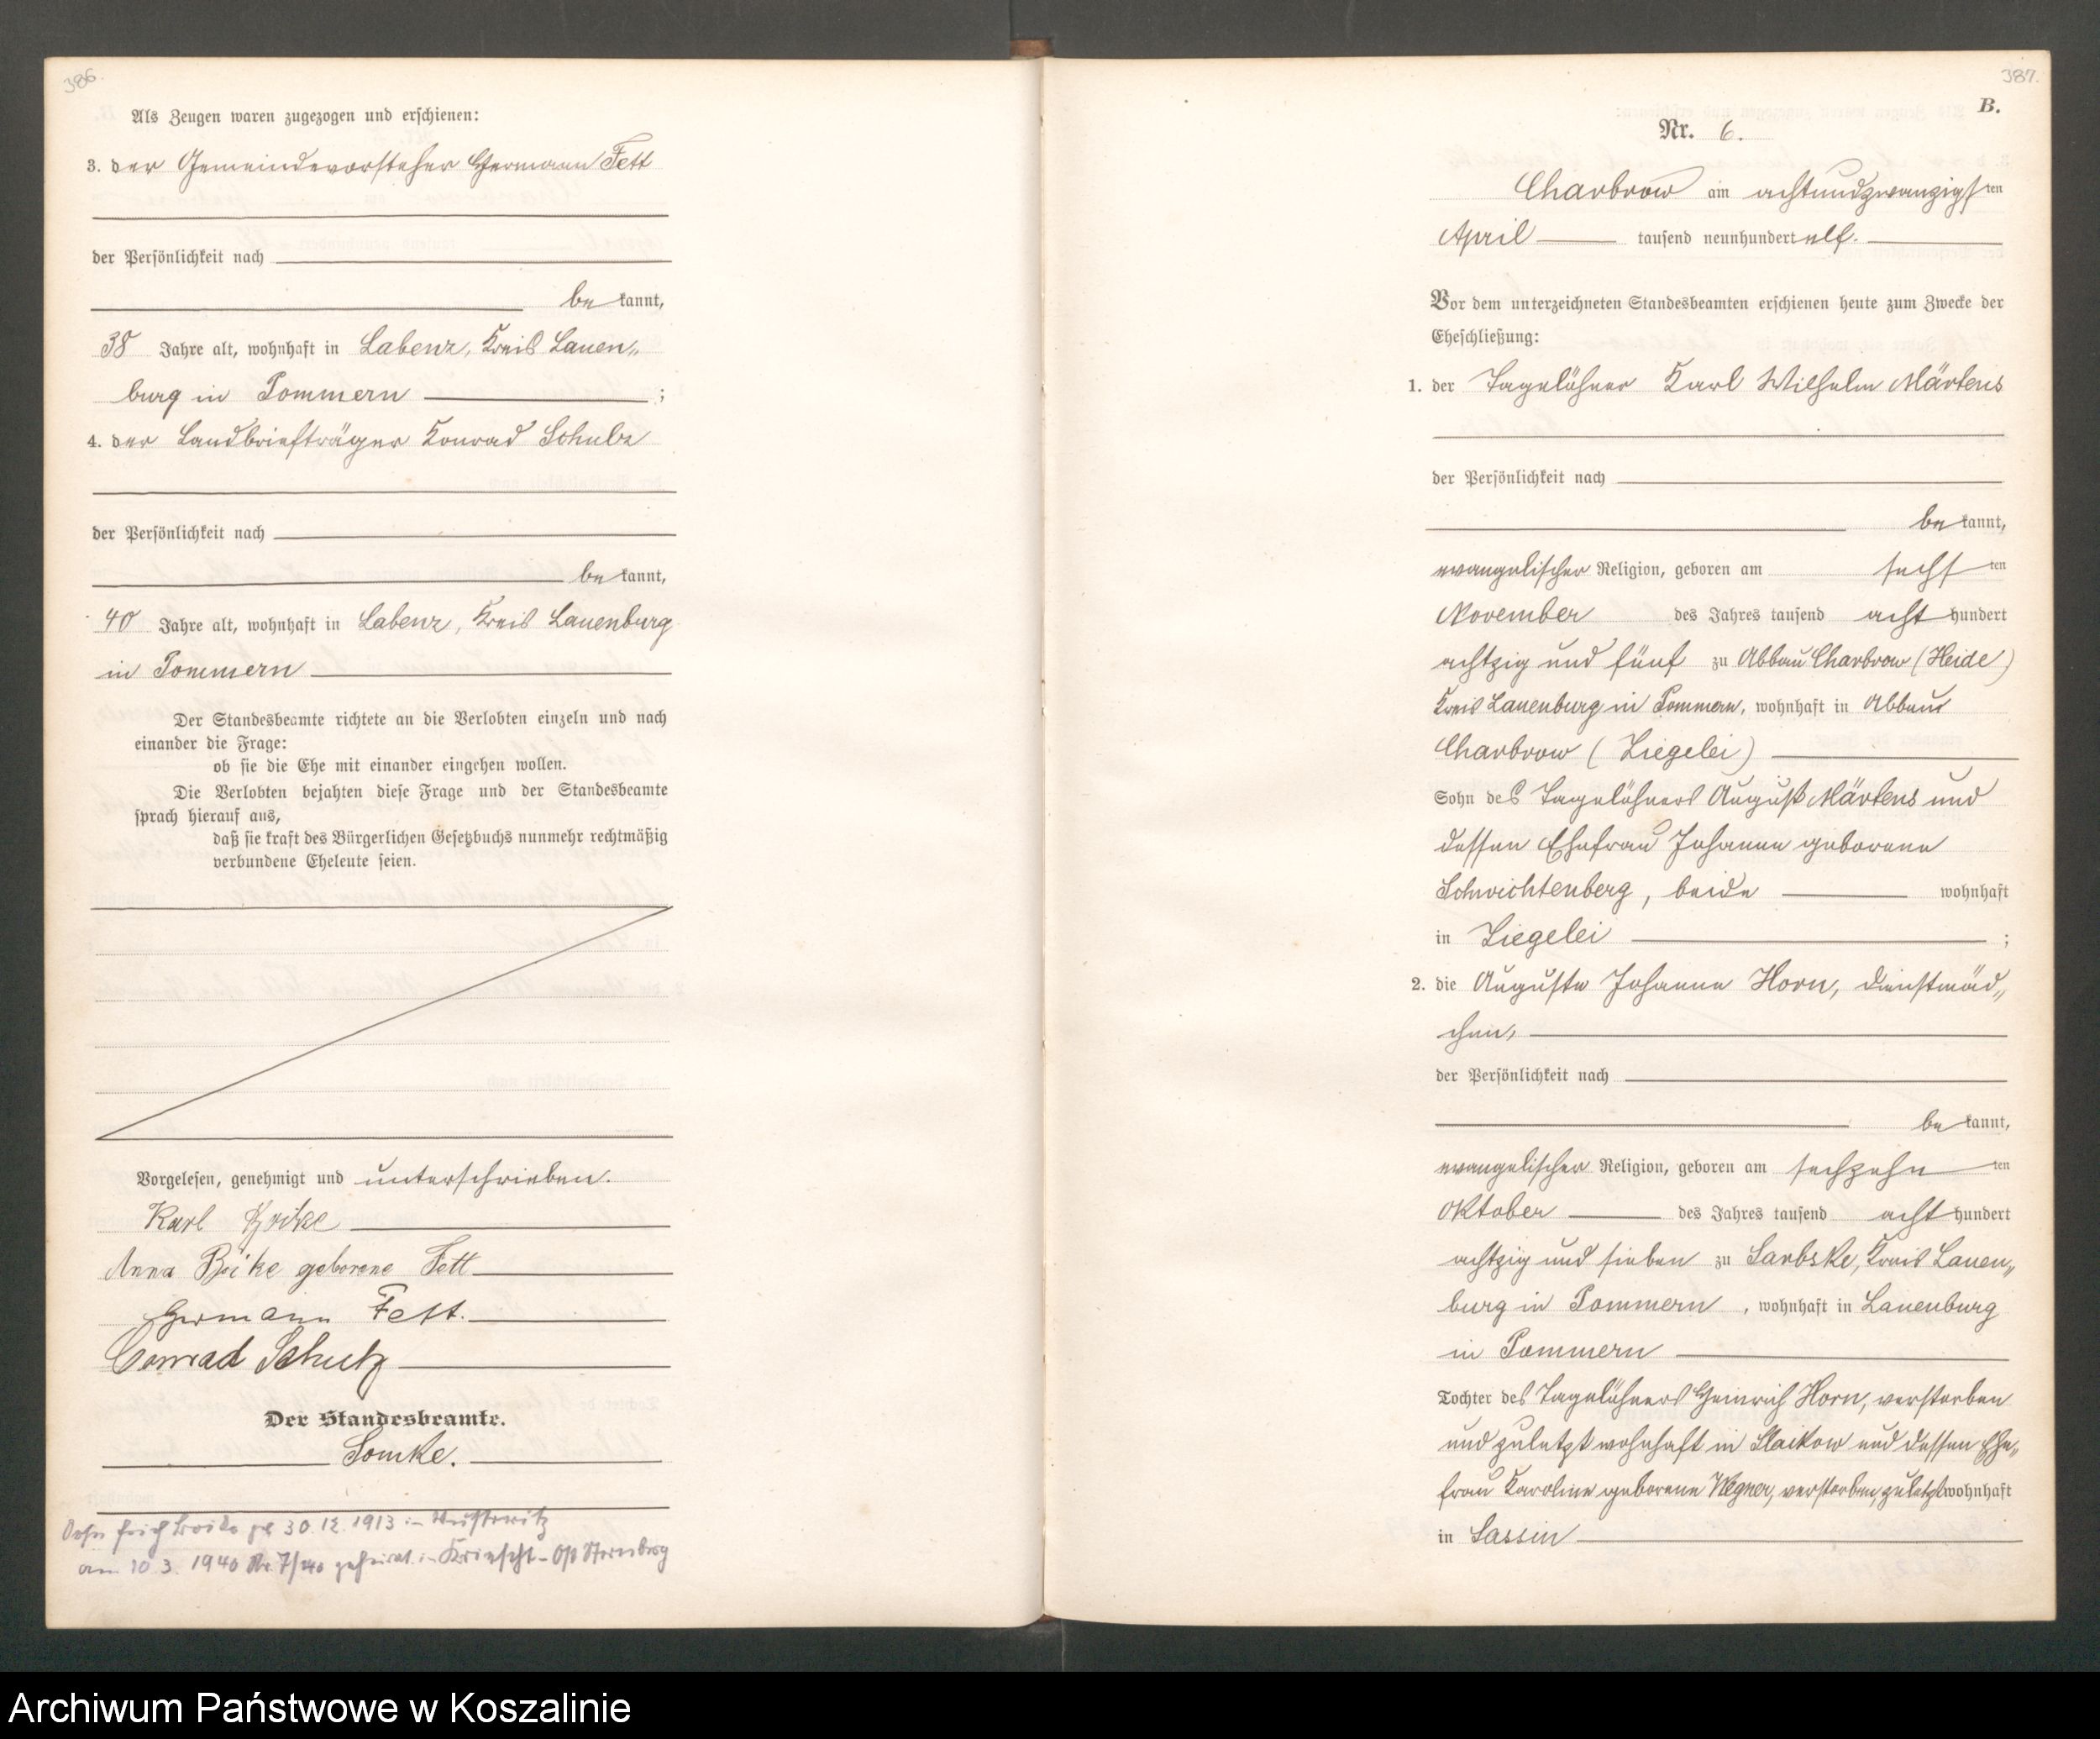 386.
Als Zeugen waren zugezogen und erschienen:
3. der Gemeindevorsteher Hermann Fett
der Persönlichkeit nach
be kannt,
38 Jahre alt, wohnhaft in Labenz, Kreis Lauen„
burg in Pommern ;
4. der Landbriefträger Konrad Schulz
der Persönlichkeit nach
be kannt,
40 Jahre alt, wohnhaft in Labenz, Kreis Lauenburg
in Pommern
Der Standesbeamte richtete an die Verlobten einzeln und nach
einander die Frage:
ob sie die Ehe mit einander eingehen wollen.
Die Verlobten bejahten diese Frage und der Standesbeamte
sprach hierauf aus,
daß sie kraft des Bürgerlichen Gesetzbuchs nunmehr rechtmäßig
verbundene Eheleute seien.
Vorgelesen, genehmigt und unterschrieben.
Karl
Anna geborene Fett
Hermann Fett.
Conrad Schulz
Der Standesbeamte.
Somke.
Sohn Erich 30.12.1913 in
am 10.3.1940 Nr. 7/40 geheirat. in Kriescht - Ost Sternberg
387.
B.
Nr. 6.
Charbrow am achtundzwanzigsten
April tausend neunhundert elf.
Vor dem unterzeichneten Standesbeamten erschienen heute zum Zwecke der
Eheschließung:
1. der Tagelöhner Karl Wilhelm Märtens
der Persönlichkeit nach
be kannt,
evangelischer Religion, geboren am sechsten
November des Jahres tausend acht hundert
achtzig und fünf zu Abbau Charbrow (Heide)
Kreis Lauenburg in Pommern, wohnhaft in Abbau
Charbrow (Ziegelei)
Sohn des Tagelöhners August Märtens und
dessen Ehefrau Johanne geborene
Schwichtenberg, beide wohnhaft
in Ziegelei ;
2. die Auguste Johanne Horn, Dienstmäd„
chen,
der Persönlichkeit nach
be kannt,
evangelischer Religion, geboren am sechzehnten
Oktober des Jahres tausend acht hundert
achtzig und sieben zu Sarbske, Kreis Lauen„
burg in Pommern, wohnhaft in Lauenburg
in Pommern
Tochter des Tagelöhners Heinrich Horn, verstorben
und zuletzt wohnhaft in Slaikow und dessen Ehe„
frau Karoline geborene Wegner, verstorben, zuletzt wohnhaft
in Sassin
Archiwum Państwowe w Koszalinie